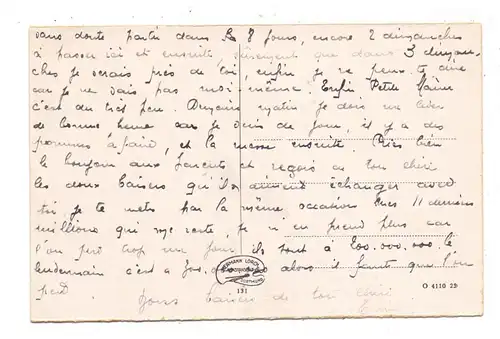 sans doute partir dans les 8 jours, encore 2 dimanches
à passer ici et ensuite, sûrement que dans 3 diman-
ches je serais près de toi, enfin je ne peux te dire
car je ne sais pas moi-même. Enfin Petite
c'est du très peu. matin je dois me lever
de bonne heure car je suis de jour, il y a des
pommes à faire, et la encore ensuite. bien
le bonjour aux Parents et reçois de ton chéri
les doux baisers qu'il aimerait échanger avec
toi, je te mets par la même occasion mes 11 derniers
millions qui me reste, je n'en prend plus car
l'on perd trop un jour ils sont à 200.000.000. le
lendemain c'est à alors il faut que l'on
perd
bons baisers de ton chéri
HERMANN LORCH
DORTMUND
131
O 4110 29